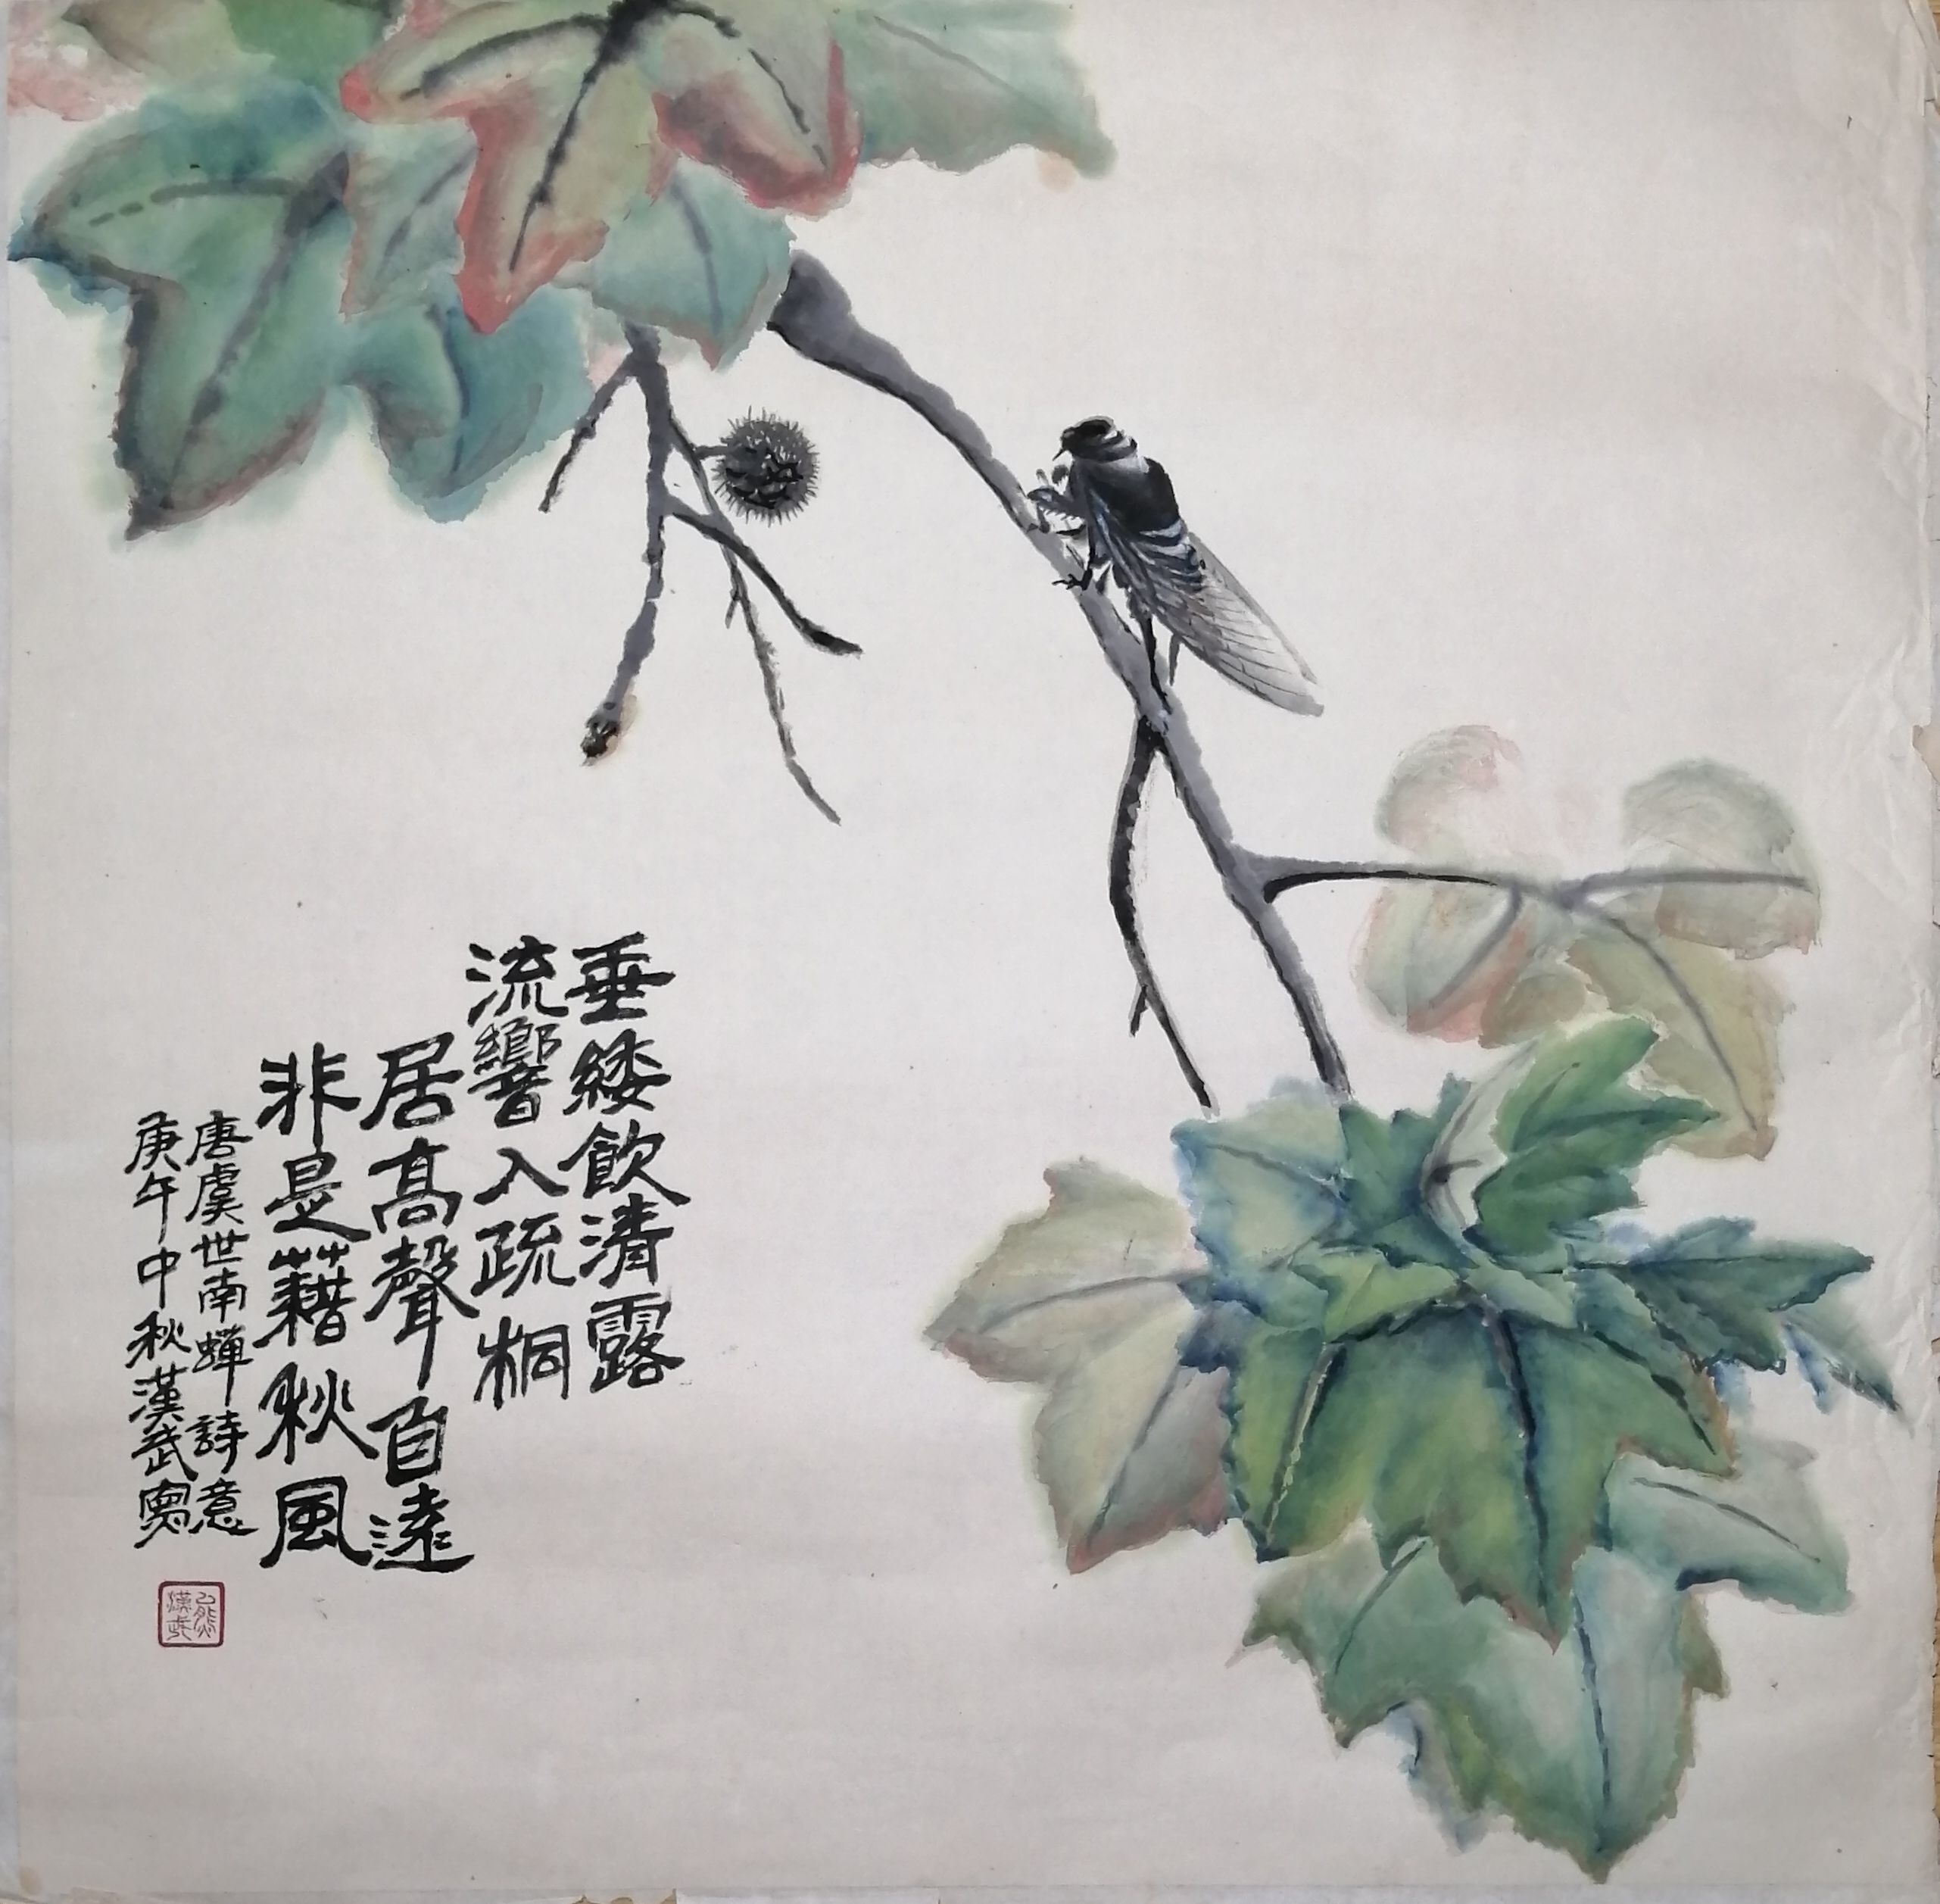 垂緌飲清露
流響入疏桐
居高聲自遠
非是藉秋風
唐虞世南蟬詩意
庚午中秋漢武寫
熊漢武